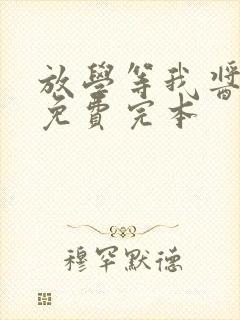 放學等我醬
免費完本
穆罕默德